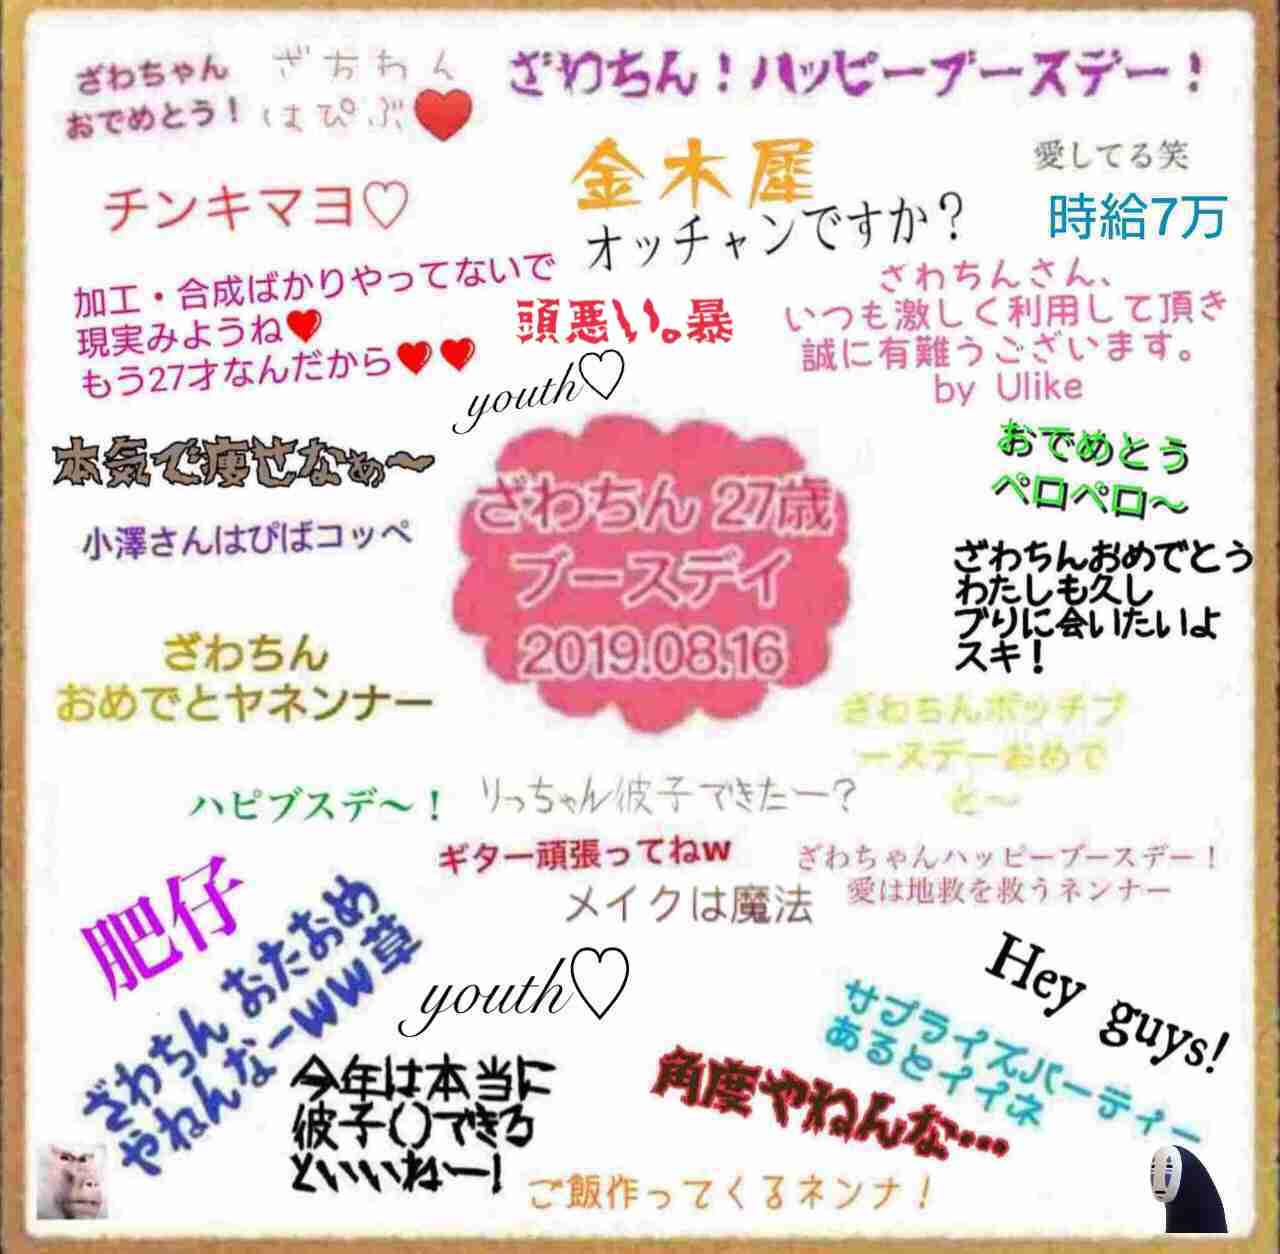 ざわちゃん
おでめとう！
ざちわん
はぴぶ❤
ざわちん！ハッピーブースデー！
チンキマヨ♡
金木犀
オッチャンですか？
愛してる笑
時給7万
加工・合成ばかりやってないで
現実みようね❤
もう27才なんだから❤❤
頭悪い。暴
youth♡
ざわちんさん、
いつも激しく利用して頂き
誠に有難うございます。
by Ulike
本気で痩せなぁ〜
小澤さんはぴばコッペ
ざわちん 27歳
ブースデイ
2019.08.16
おでめとう
ペロペロ〜
ざわちんおめでとう
わたしも久し
ブりに会いたいよ
スキ！
ざわちん
おめでとヤネンナー
ざわちんボッチブ
ースデーおめで
と〜
ハピブスデ〜！
りっちゃん彼子できたー？
ギター頑張ってねw
メイクは魔法
ざわちゃんハッピーブースデー！
愛は地救を救うネンナー
肥仔
ざわちん おたおめ
やねんなーww草
youth♡
Hey guys!
サプライズパーティー
あるとイイネ
今年は本当に
彼子()できろ
といいねー！
角度やねんな…
ご飯作ってくるネンナ！